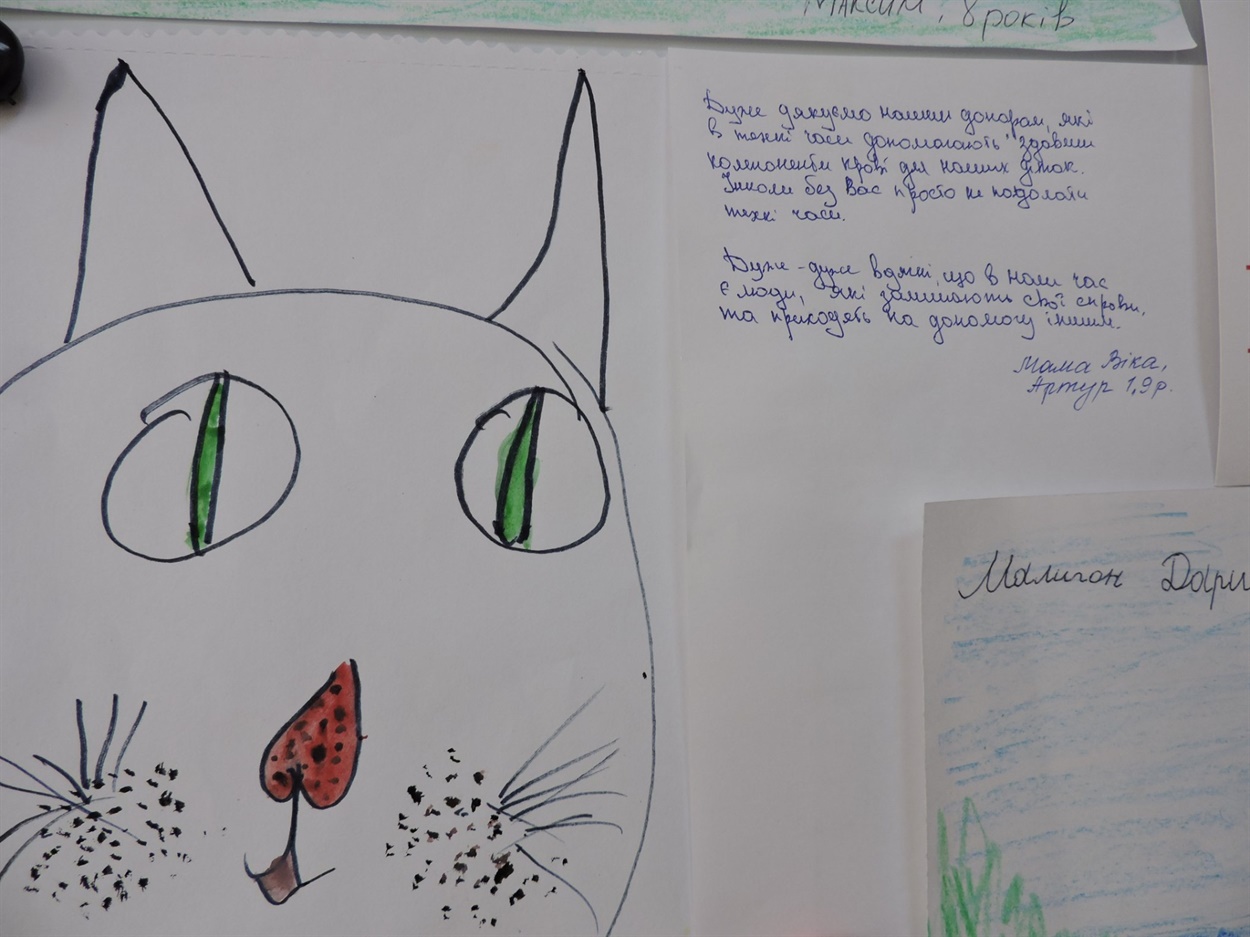 Максим, 8 років
Дуже дякуємо нашим донорам, які
в тяжкі часи допомагають здавши
компоненти крові для наших діток.
Інколи без Вас просто не подолати
тяжкі часи.
Дуже-дуже вдячні, що в наш час
є люди, які залишають свої справи,
та приходять на допомогу іншим.
Мама Віка,
Артур 1,9 р.
Малигон Дари